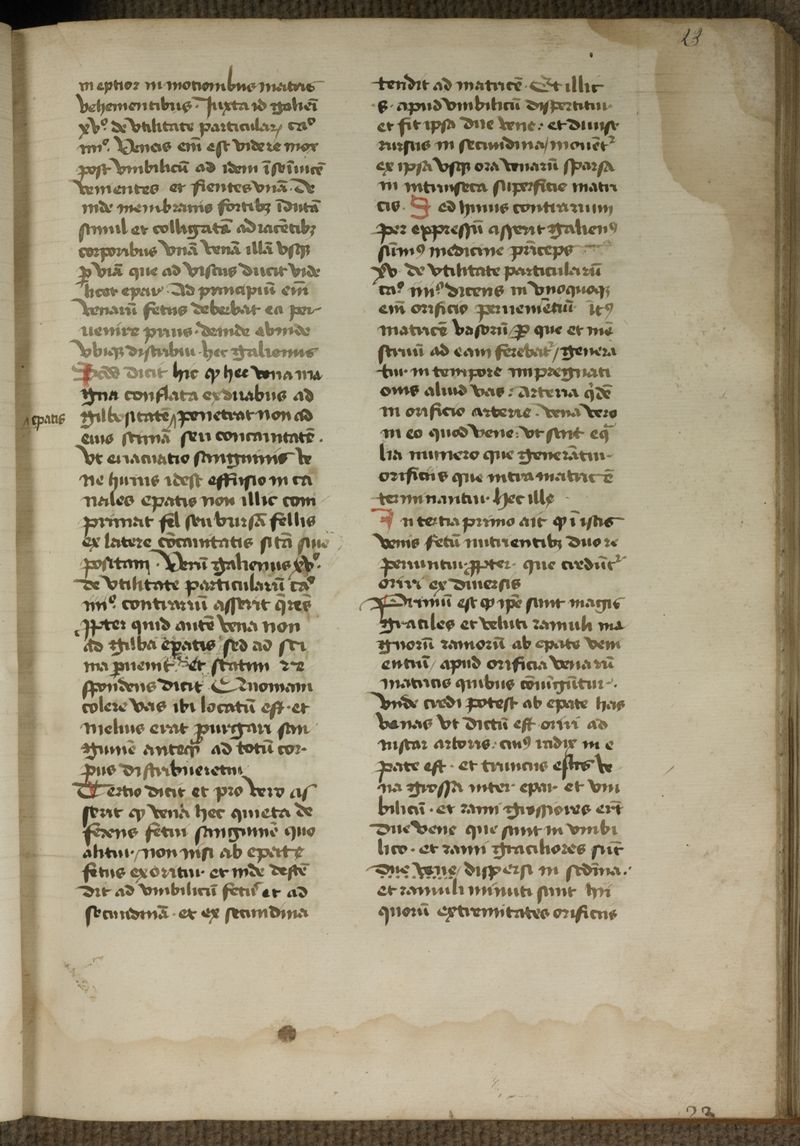 23
in eptior in motionibus matris
vehementibus. Juxta id galieñ
xvº de vtilitate particular caº
iiiiº. Venas em̄ est videre mox
post vmbilicū ad idem
venientes et fientes vnā. De
inde membranis fortibꝫ
simul et colligatā adiacētibꝫ
corporibus vnā venā illā vsqꝫ
ꝑ viā que ad viscus ducit vide
licet epar. Ad principiū em̄
venarū fetus debebat ea per
uenire prius. deinde abinde
vbiqꝫ distribui. hec galienus
dicit hic ꝙ hec vena ma
gna conflata ex duabus ad
gilbositatē penetrat non ad
epatis
eius simā seu concauitatē.
Vt euacuatio sanguinis ve
ne huius idest effusio in ca
nales epatis non illic com
primat fel seu bursā fellis
ex latere cōcauitatis sitā siue
positam. Verū galienus xvº.
de vtilitate particularū caº
iiiiº. contrariū asserit q̄rēs
ꝓpter quid autē vena non
ad gilba epatis sed ad si
ma ꝑuenit et statim re
spondens dicit Quoniam
colere vas ibi locatū est. et
melius erat purgari san
guinē anteqꝫ ad totū cor.
pus distribueretur
Tertio dicit et pro vero as
serit ꝙ vena hec quieta de
ferens fetui sanguinē quo
alitur / non nisi ab epate
fetus exoritur. et inde descē
dit ad vmbilicū fetus et ad
secundinā. et ex secundina
tendit ad matricē. Et illic
s. apud vmbilicū dispertitur
et fit ipsa due vene: et diuisī
rursus in secundina /
ex ipsa vsqꝫ ora venarū sparsa
in intrinseca suꝑficie matri
cis. Sed huius contrarium
per expressū asserit galienꝰ
sūmꝰ medicine prīceps
xv de vtilitate particularū
caº iiiiº dicens in vnoquoqꝫ
em̄ orificio peruenientiū
matricē vasorū / ꝑ que et mē
struū ad eam ferebat / genera
tur in tempore impregnati
onis aliud vas: Arteria q̄dē
in orificio arterie. vena vero
in eo quod vene: vt sint eq̄
lia numero que generātur
orificiis que intra matricē
terminantur. hec ille
In tertia primo ait ꝙ in istis
venis fetū nutrientibꝫ duo re
periuntur ꝓpter que credūtur
oriri ex diuersis
Primū est ꝙ ipse sunt magis
graciles et veluti ramuli ma
gnorū ramorū ab epate veni
entiū / apud orificia venarū
matricis quibus cōiūgūtur.
Vnde credi potest ab epate has
venas vt dictū est oriri ad
instar arboris. cuiꝰ radix in e
pate est. et truncus est ve
na grossa inter epar et vm
bilicū. et rami grossiores erūt
due vene que sunt in vmbi
lico. et rami graciliores sūt
due vene / dispersi in sedīna.
et ramuli minuti sunt hii
quorū extremitates orificiis
23